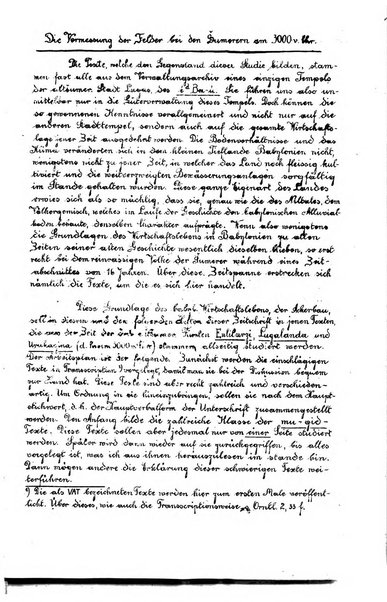 Die Vermessung der Felder bei den Sumerern um 3000 v. Chr.
Die Texte, welche den Gegenstand dieser Studie bilden, stam-
men fast alle aus dem Verwaltungsarchiv eines einzigen Tempels
der altsumer. Stadt Lagas, des é d Ba-ú. Sie führen uns also un-
mittelbar nur in die Güterverwaltung dieses Tempels. Doch können die
so gewonnenen Kenntnisse verallgemeinert und nicht nur auf die
anderen Stadttempel, sondern auch auf die gesamte Wirtschafts-
lage jener Zeit ausgedehnt werden. Die Bodenverhältnisse und das
Klima veränderten sich in dem kleinen Tieflande Babylonien nicht,
wenigstens nicht zu jener Zeit, in welcher das Land noch fleissig kul-
tiviert und die weitverzweigten Bewässerungsanlagen sorgfältig
im Stande gehalten wurden. Diese ganze Eigenart des Landes
erwies sich als so mächtig, dass sie, genau wie die des Niltales, dem
Völkergemisch, welches im Laufe der Geschichte den babylonischen Alluvial-
boden bebaute, denselben Charakter aufprägte. Wenn also wenigstens
die Grundlagen des Wirtschaftslebens in Babylonien zu allen
Zeiten seiner alten Geschichte wesentlich dieselben blieben, so erst
recht bei dem einrassigen Volke der Sumerer während eines Zeit-
abschnittes von 16 Jahren. Über diese Zeitspanne erstrecken sich
nämlich die Texte, um die es sich hier handelt.
Diese Grundlage des babyl. Wirtschaftslebens, der Ackerbau,
soll in diesem und den folgenden dieser Zeitschrift in jenen Texten,
die aus der Zeit der sumer. Fürsten Enlitarzi, Lugalanda und
Urukagina stammen, allseitig studiert werden.
Der Arbeitsplan ist der folgende. Zunächst werden die einschlägigen
Texte in Transcription vorgelegt, damit man sie bei der Diskussion bequem
zur Hand hat. Diese Texte sind aber recht zahlreich und verschieden-
artig. Um Ordnung in sie hineinzubringen, sollen sie nach dem Haupt-
stichwort, d. h. der Hauptverbalform der Unterschrift zusammengestellt
werden. Den Anfang bilde die zahlreiche Klasse der mu-gíd-
Texte. Diese Texte sollen aber jedesmal nur von einer Seite studiert
werden. Später wird dann wieder auf sie zurückgegriffen, bis alles
vorgelegt ist, was ich aus ihnen herauszulesen im stande bin.
Dann mögen andere die Erklärung dieser schwierigen Texte wei-
terführen.
1) Die als VAT bezeichneten Texte werden hier zum ersten Male veröffent-
licht. Über dieses, wie auch die Transcriptionsweise, Orntl. 2, 33 f.